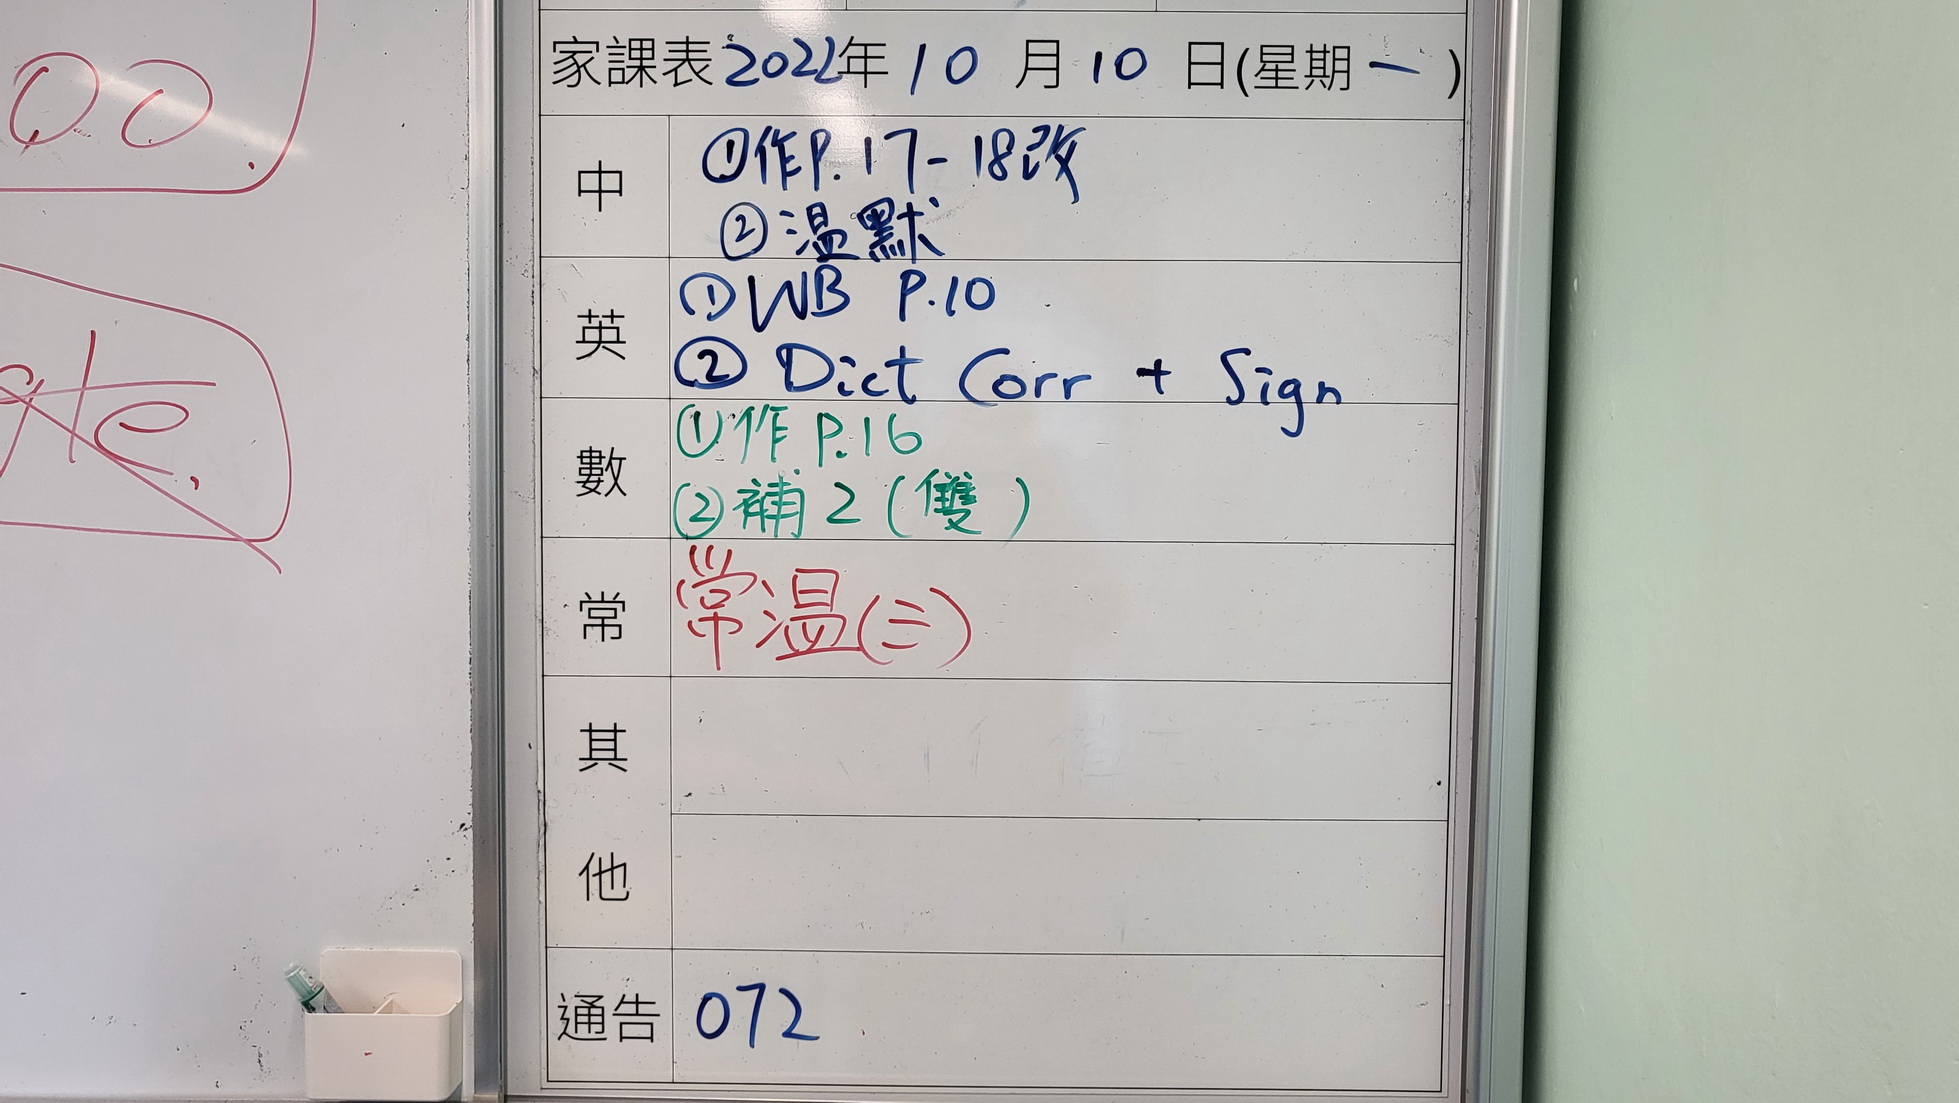 00.
gte.
家課表 2022年 10 月 10 日(星期一)
中
①作P.17-18改
②温默
英
①WB P.10
② Dict Corr + Sign
數
①作 P.16
②補 2 (雙)
常
常温(三)
其
他
通告
072